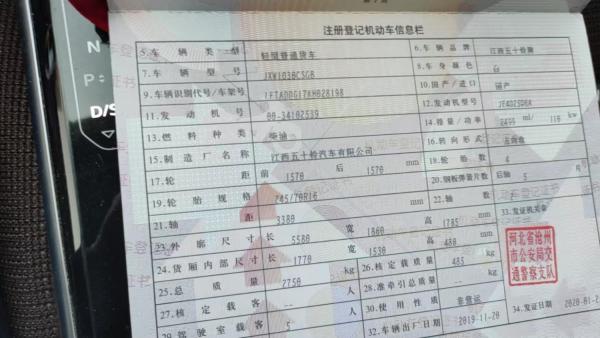 注册登记机动车信息栏
5.车辆类型 轻型普通货车 6.车辆品牌 江西五十铃牌
7.车辆型号 JXW1036CSGB 8.车身颜色 白
9.车辆识别代号/车架号 10.国产/进口 国产
11.发动机号 00-34102539 12.发动机型号
13.燃料种类 柴油 14.排量/功率 ml/ 110 kw
15.制造厂名称 江西五十铃汽车有限公司 16.转向形式
17.轮距 前 1570 后 1570 mm 18.轮胎数 4
19.轮胎规格 245/70R16 20.钢板弹簧片数 后轴 5 片
21.轴距 3380 mm 22.轴数
23.外廓尺寸 长 5580 宽 1860 高 1785 mm 33.发证机关章
24.货厢内部尺寸 长 1770 宽 1530 高 480 mm
25.总质量 2750 kg 26.核定载质量 485 kg
27.核定载客 人 28.准牵引总质量
29.驾驶室载客 5 人 30.使用性质 非营运
32.车辆出厂日期 2019-11-20 34.发证日期
河北省沧州
市公安局交
通警察支队
N
P
D/S